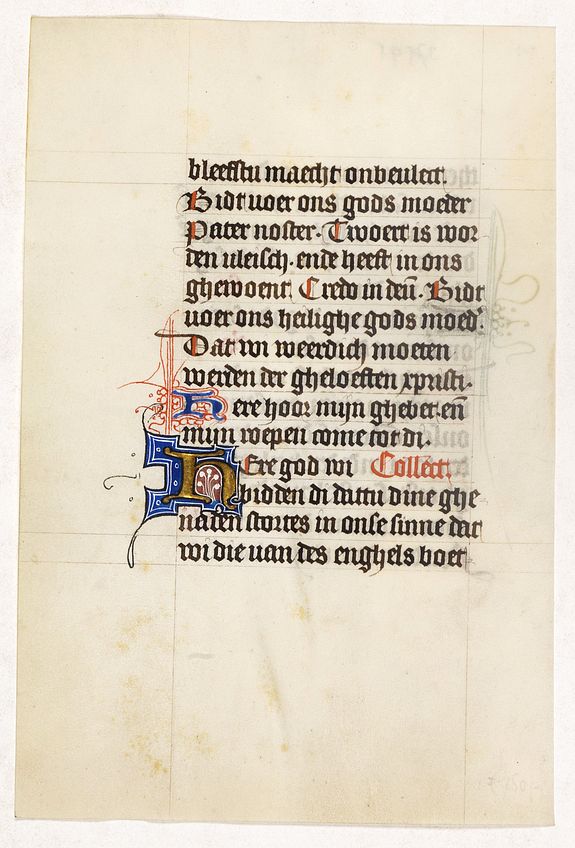 bleefstu maecht onbeulect.
Bidt uoer ons gods moeder
Pater noster. Twoert is wor
den uleisch. ende heeft in ons
ghewoent. Credo in deū. Bidt
uoer ons heilighe gods moed'.
Dat wi weerdich moeten
werden der gheloeften xpristi.
Here hoor mijn ghebet. eñ
mijn roepen come tot di.
HEre god wi Collect;
bidden di dattu dine ghe
naden stortes in onse sinne dat
wi die uan des enghels boet